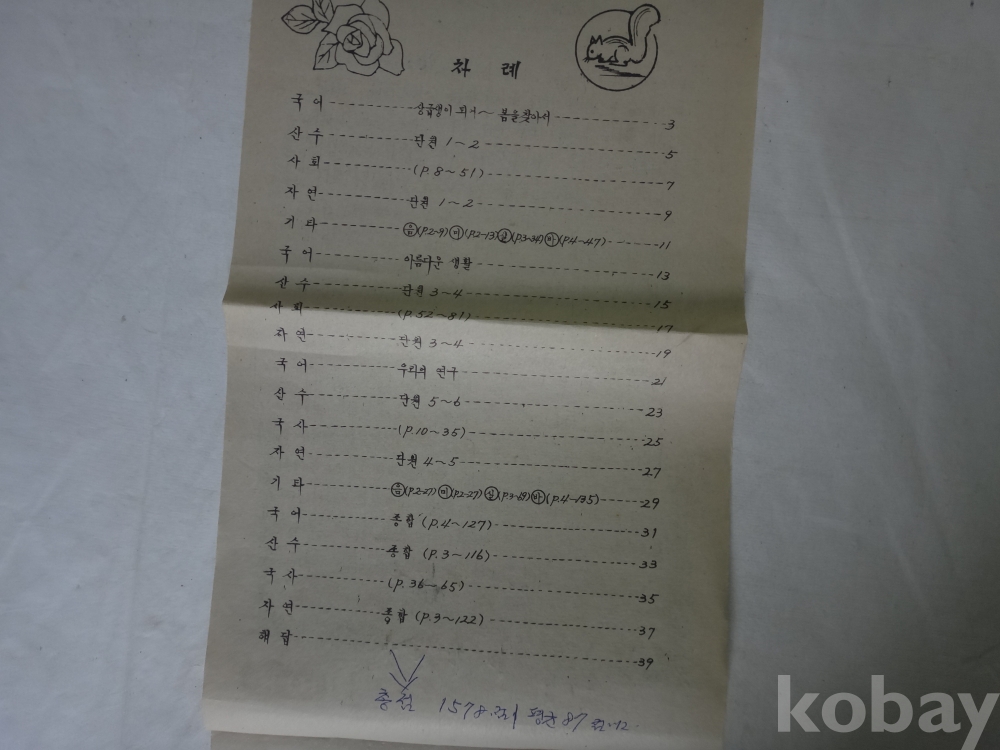 차 례
국 어 상급생이 되서~ 봄을찾아서 3
산 수 단원 1~2 5
사 회 (P.8~51) 7
자 연 단원 1~2 9
기 타 음(P.2~9) 미(P.2-13) 실(P.3~34) 바(P.4~47) 11
국 어 아름다운 생활 13
산 수 단원 3~4 15
사 회 (P.52~81) 17
자 연 단원 3~4 19
국 어 우리의 연구 21
산 수 단원 5~6 23
국 사 (P.10~35) 25
자 연 단원 4~5 27
기 타 음(P.2-27) 미(P.2-27) 실(P.3~69) 바(P.4-135) 29
국 어 종합 (P.4~127) 31
산 수 종합 (P.3~116) 33
국 사 (P.36-65) 35
자 연 종합 (P.3~122) 37
해 답 39
총점 1578 평균 87
kobay